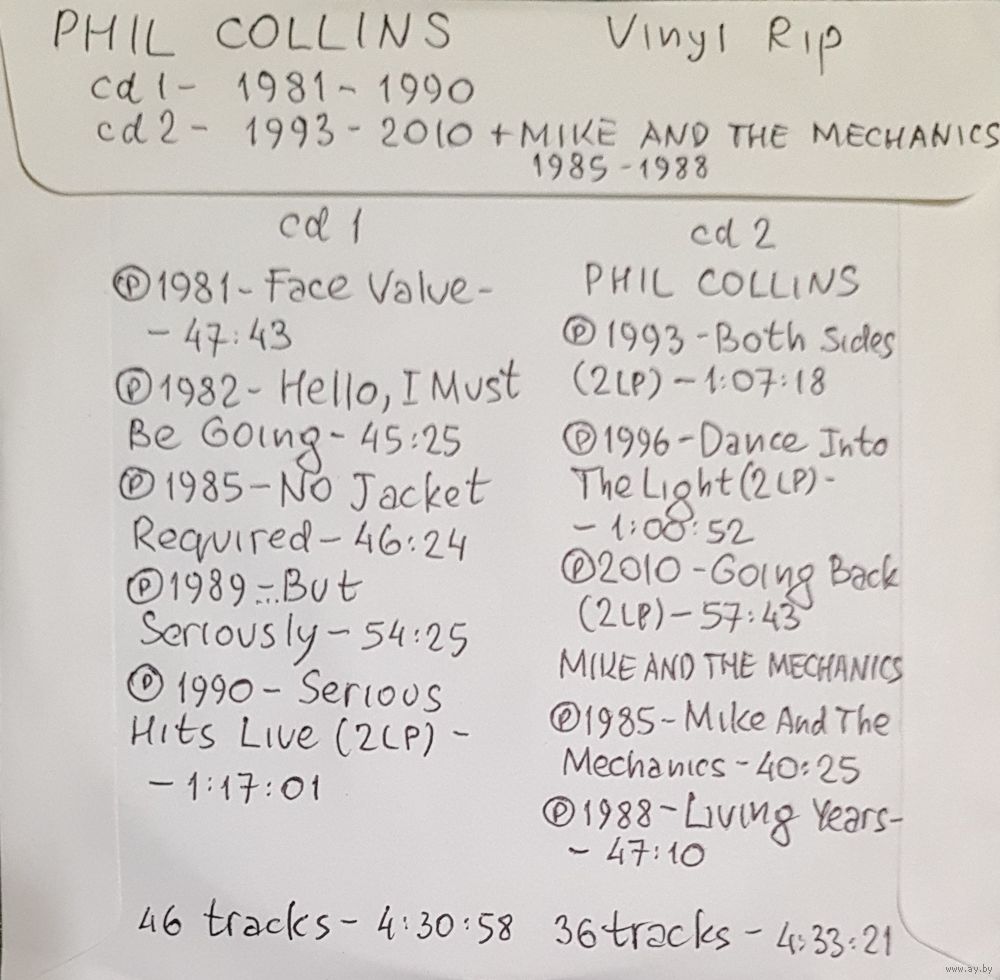 PHIL COLLINS Vinyl Rip
cd 1 - 1981 - 1990
cd 2 - 1993 - 2010 + MIKE AND THE MECHANICS
1985 - 1988
cd 1
Ⓟ 1981 - Face Value -
- 47:43
Ⓟ 1982 - Hello, I Must
Be Going - 45:25
Ⓟ 1985 - No Jacket
Required - 46:24
Ⓟ 1989 - ...But
Seriously - 54:25
Ⓟ 1990 - Serious
Hits Live (2LP) -
- 1:17:01
46 tracks - 4:30:58
cd 2
PHIL COLLINS
Ⓟ 1993 - Both Sides
(2LP) - 1:07:18
Ⓟ 1996 - Dance Into
The Light (2LP) -
- 1:08:52
Ⓟ 2010 - Going Back
(2LP) - 57:43
MIKE AND THE MECHANICS
Ⓟ 1985 - Mike And The
Mechanics - 40:25
Ⓟ 1988 - Living Years -
- 47:10
36 tracks - 4:33:21
www.ay.by